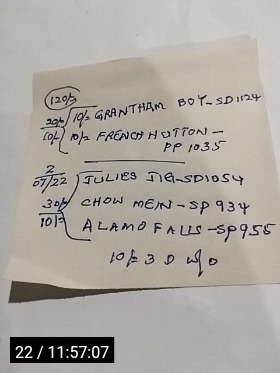 120/=
20/= 10/= GRANTHAM BOY-SD1124
10/= 10/= FRENCH HUTTON-
PP 1035
2
07/22 JULIES JIG-SD1054
30/= CHOW MEIN-SP934
10/= ALAMO FALLS-SP955
10/= 3 D w/o
22 / 11:57:07